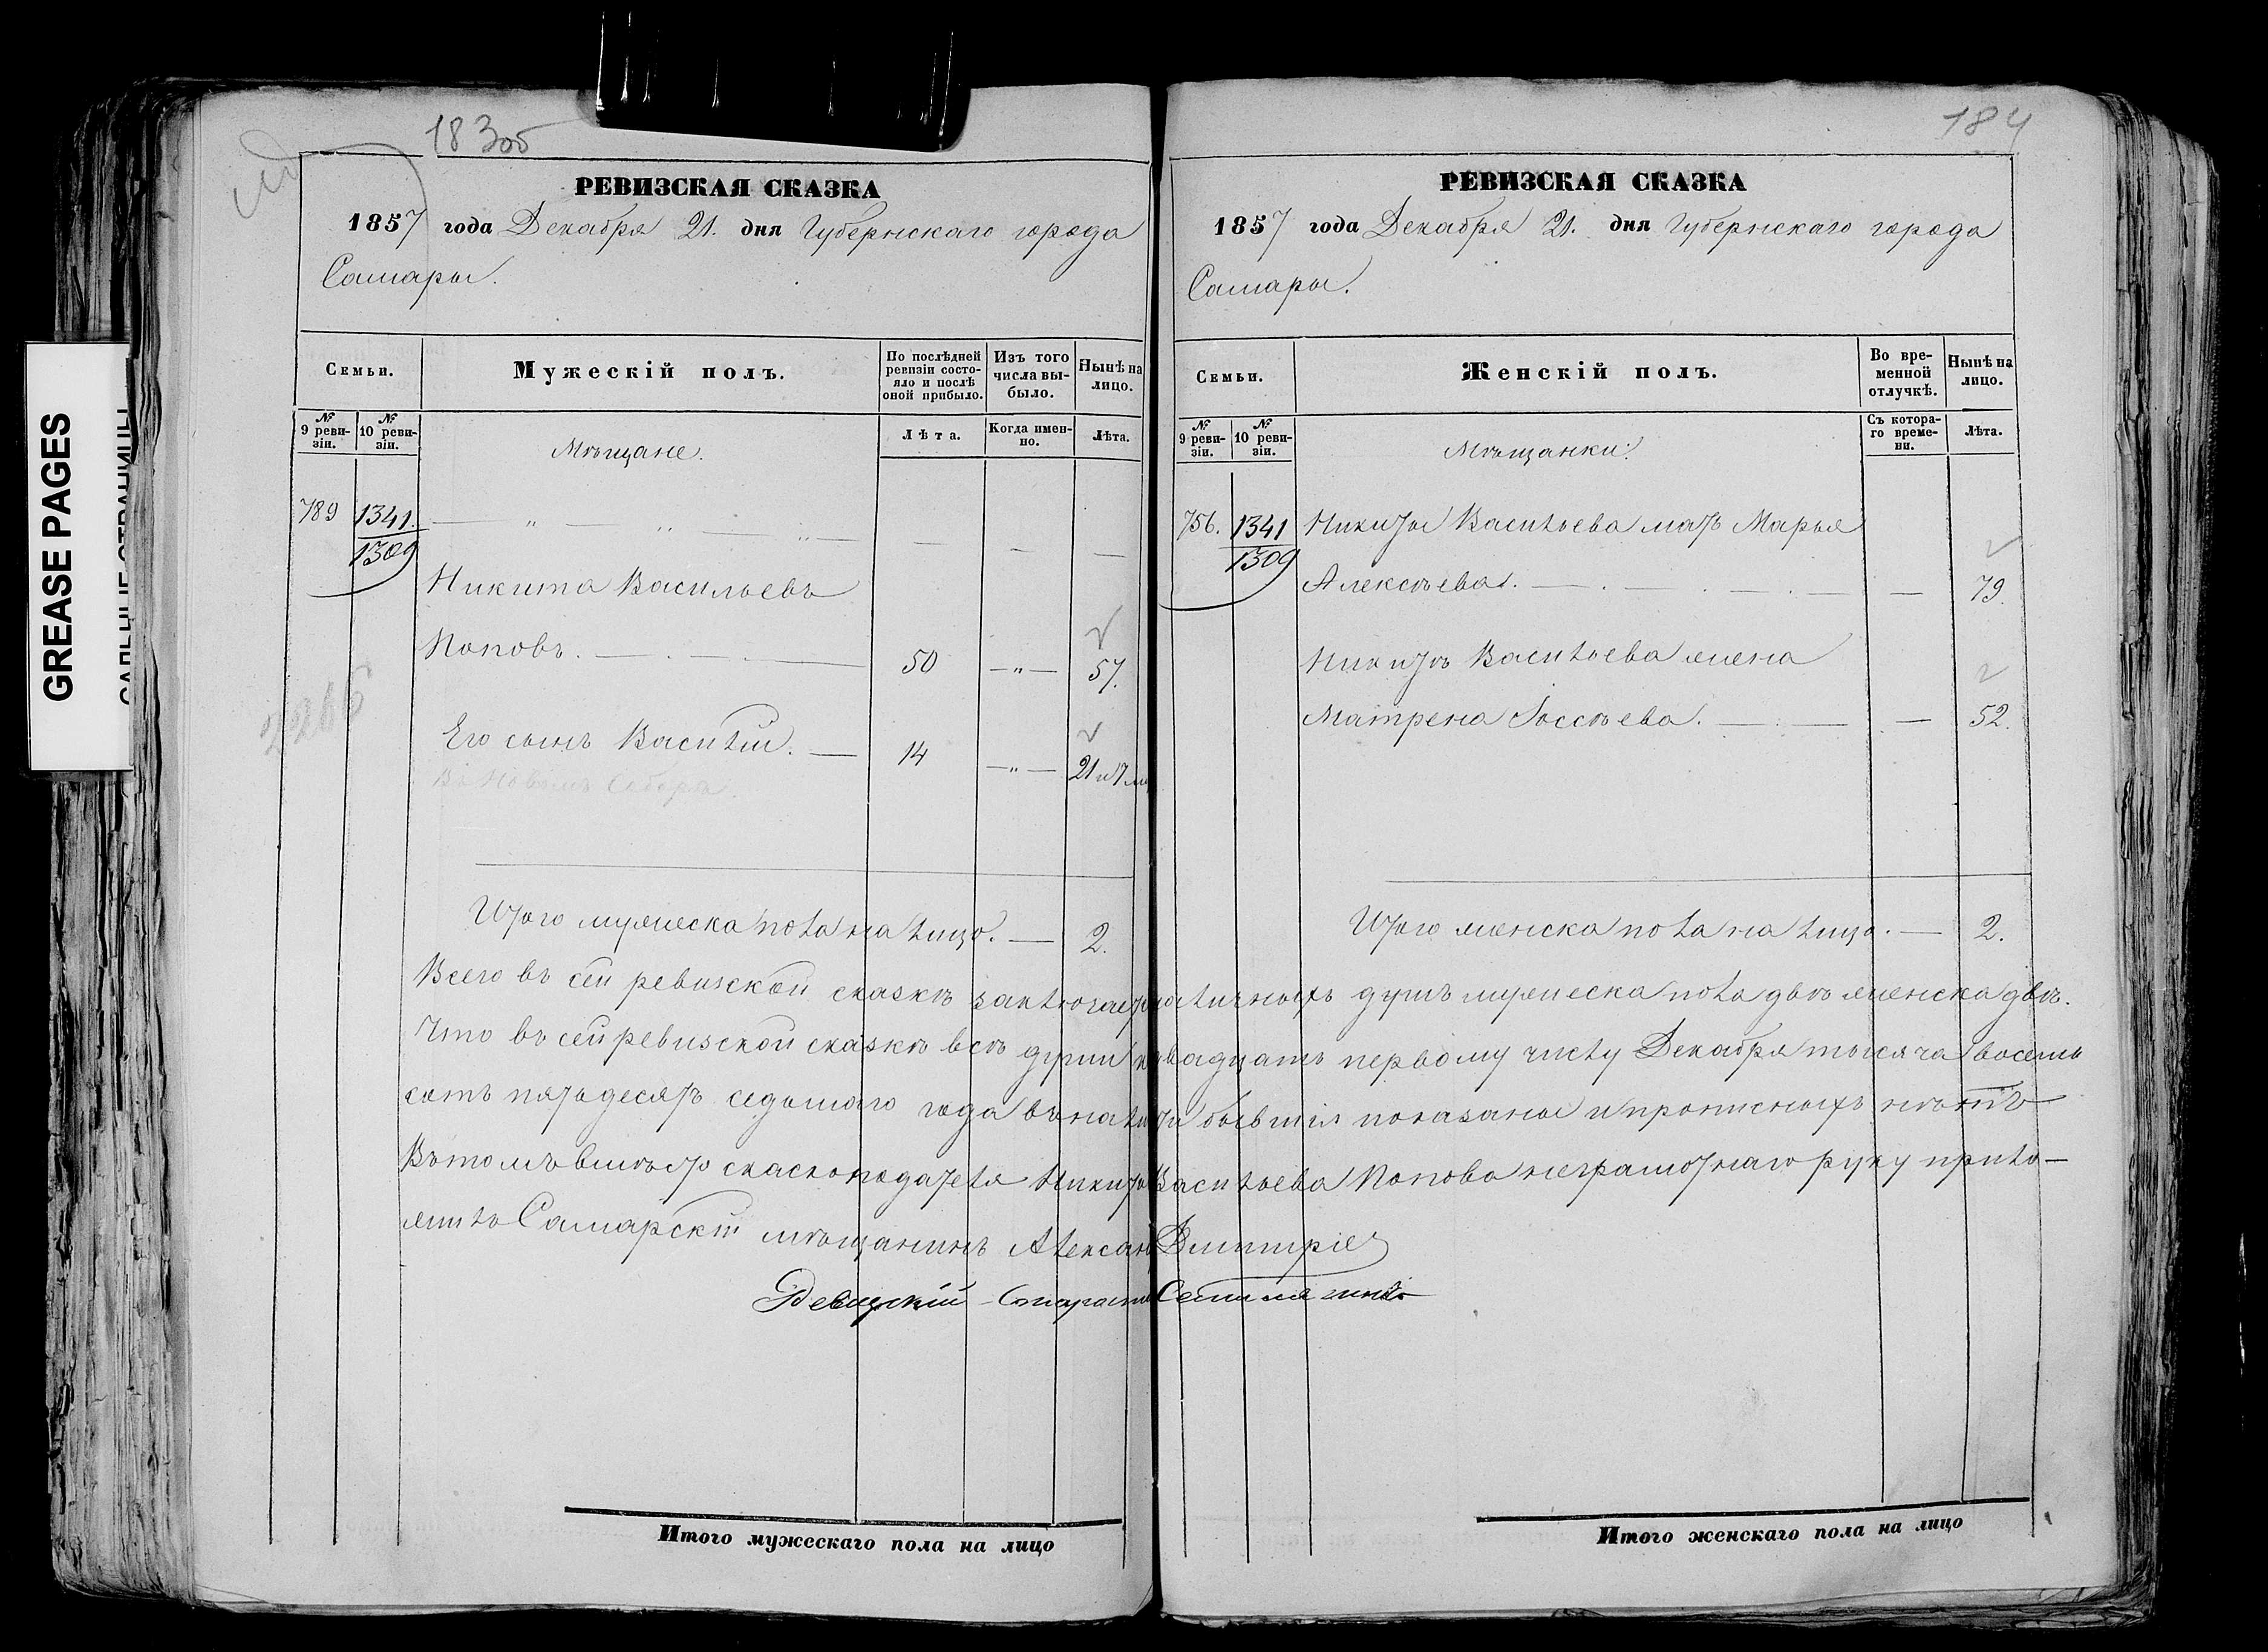 183об
РЕВИЗСКАЯ СКАЗКА
1857 года Декабря 21. дня Губернскаго города
Самары.
Семьи.
Мужескій полъ.
По послѣдней ревизіи состояло и послѣ оной прибыло.
Изъ того числа выбыло.
Нынѣ на лицо.
№ 9 ревизіи.
№ 10 ревизіи.
Мѣщане.
Лѣта.
Когда именно.
Лѣта.
789 1341. — " — " — " — — — —
1309
Никита Васильевъ
Поповъ. — . — . — 50 — " — 57.
Его сынъ Василій. — 14 — " — 21 и 7 м
Въ Новомъ Соборѣ.
Итого мужеска пола на лицо. — 2.
184
РЕВИЗСКАЯ СКАЗКА
1857 года Декабря 21. дня Губернскаго города
Самары.
Семьи.
Женскій полъ.
Во временной отлучкѣ.
Нынѣ на лицо.
№ 9 ревизіи.
№ 10 ревизіи.
Мѣщанки.
Съ котораго времени.
Лѣта.
756. 1341 Никиты Васильева мать Марья
1309
Алексѣева. — . — . — . — — 79.
Никиты Васильева жена
Матрена — . — — 52.
Итого женска пола на лицо. — 2.
Всего въ сей ревизской сказкѣ заключает наличныхъ душъ мужеска пола двѣ женска двѣ.
Что въ сей ревизской сказкѣ всѣ души к двадцать первому числу Декабря тысяча восемь
сотъ пятьдесятъ седьмаго года въ наличи бывшія показаны и прописныхъ нѣтъ
Въ томъ вмѣсто сказкоподателя Никиты Васильева Попова неграмотнаго руку прило-
жилъ Самарскій мѣщанинъ Алексан Дмитріе
Ревизскій Староста
Итого мужескаго пола на лицо
Итого женскаго пола на лицо
GREASE PAGES
САЛЬНЫЕ СТРАНИЦЫ